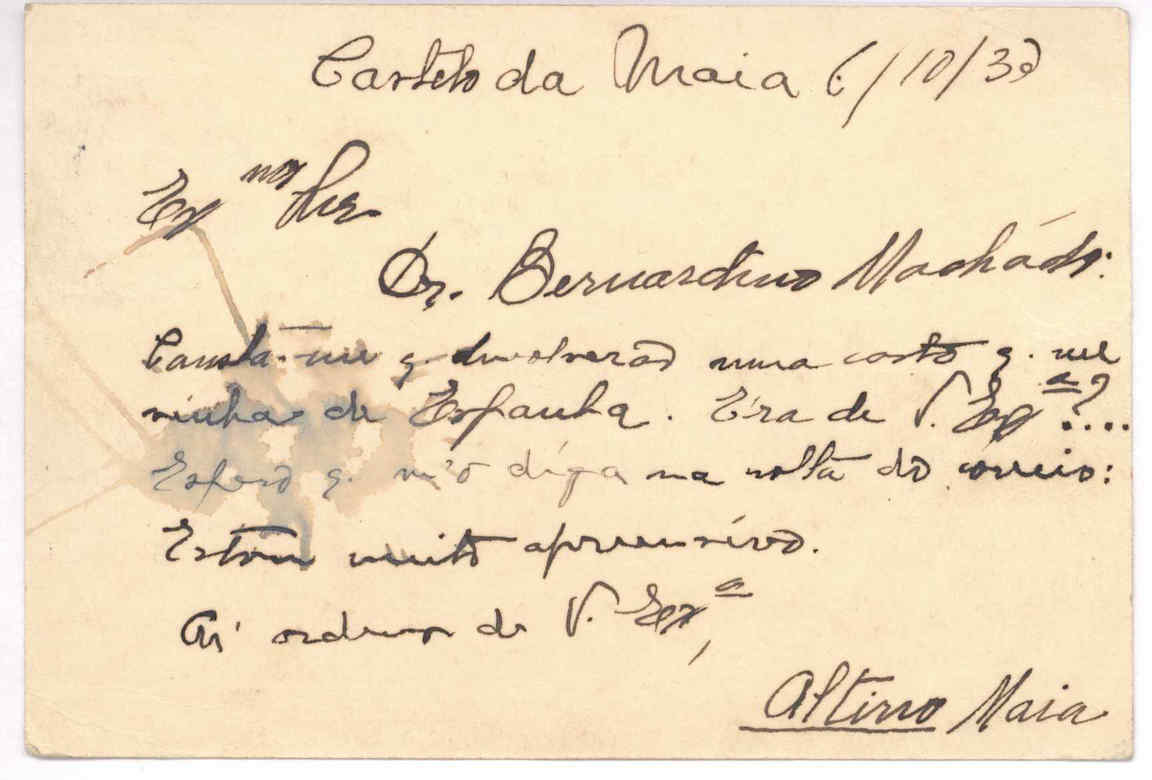 Castelo da Maia 6/10/39
Exmo Snr.
Dr. Bernardino Machado:
Consta-me q. devolverão uma carta q. me
vinha de Espanha. Era de V. Exª?....
Espero q. m'o diga na volta do correio:
Estou muito apreensivo.
Ás ordens de V. Exª,
Altino Maia